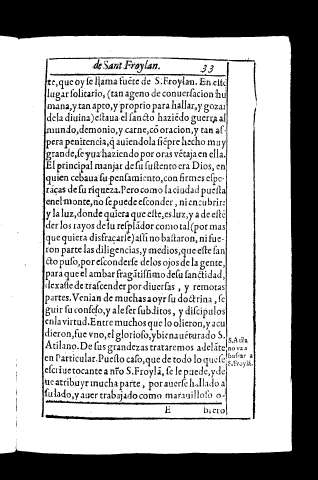 de Sant Froylan. 33
te, que oy se llama fuẽte de S. Froylan. En este
lugar solitario, (tan ageno de conuersacion hu
mana, y tan apto, y proprio para hallar, y gozar
de la diuina) estaua el sancto haziẽdo guerra al
mundo, demonio, y carne, cõ oracion, y tan as-
pera penitencia, q̃ auiendola siẽpre hecho muy
grande, se yua haziendo por oras vẽtaja en ella.
El principal manjar de su sustento era Dios, en
quien cebaua su pensamiento, con firmes espe-
rãças de su riqueza. Pero como la ciudad puesta
en el monte, no se puede esconder, ni encubrir a
y la luz, donde quiera que este, es luz, y a de estẽ
der los rayos de tu resplãdor como tal (por mas
que quiera disfraçarse) assi no bastaron, ni fue-
ron parte las diligencias, y medios, que este san
cto puso, por esconderse de los ojos de la gente,
para que el ambar fragãtissimo de su sanctidad,
dexasse de trascender por diuersas, y remotas
partes. Venian de muchas a oyr su doctrina, se
guir su consejo, y a le ser subditos, y discipulos
en la virtud. Entre muchos que lo olieron, y acu
dieron, fue vno, el glorioso, y bienauẽturado S.
Atilano. De sus grandezas trataremos adelãte
en Particular. Puesto caso, que de todo lo que se
escriue tocante a nr̃o S. Froylã, se le puede, y de
ue atribuyr mucha parte, por auerse hallado a
su lado, y auer trabajado como marauilloso o-
S. Atila
no va a
buscar a
S. Froylã.
E brero